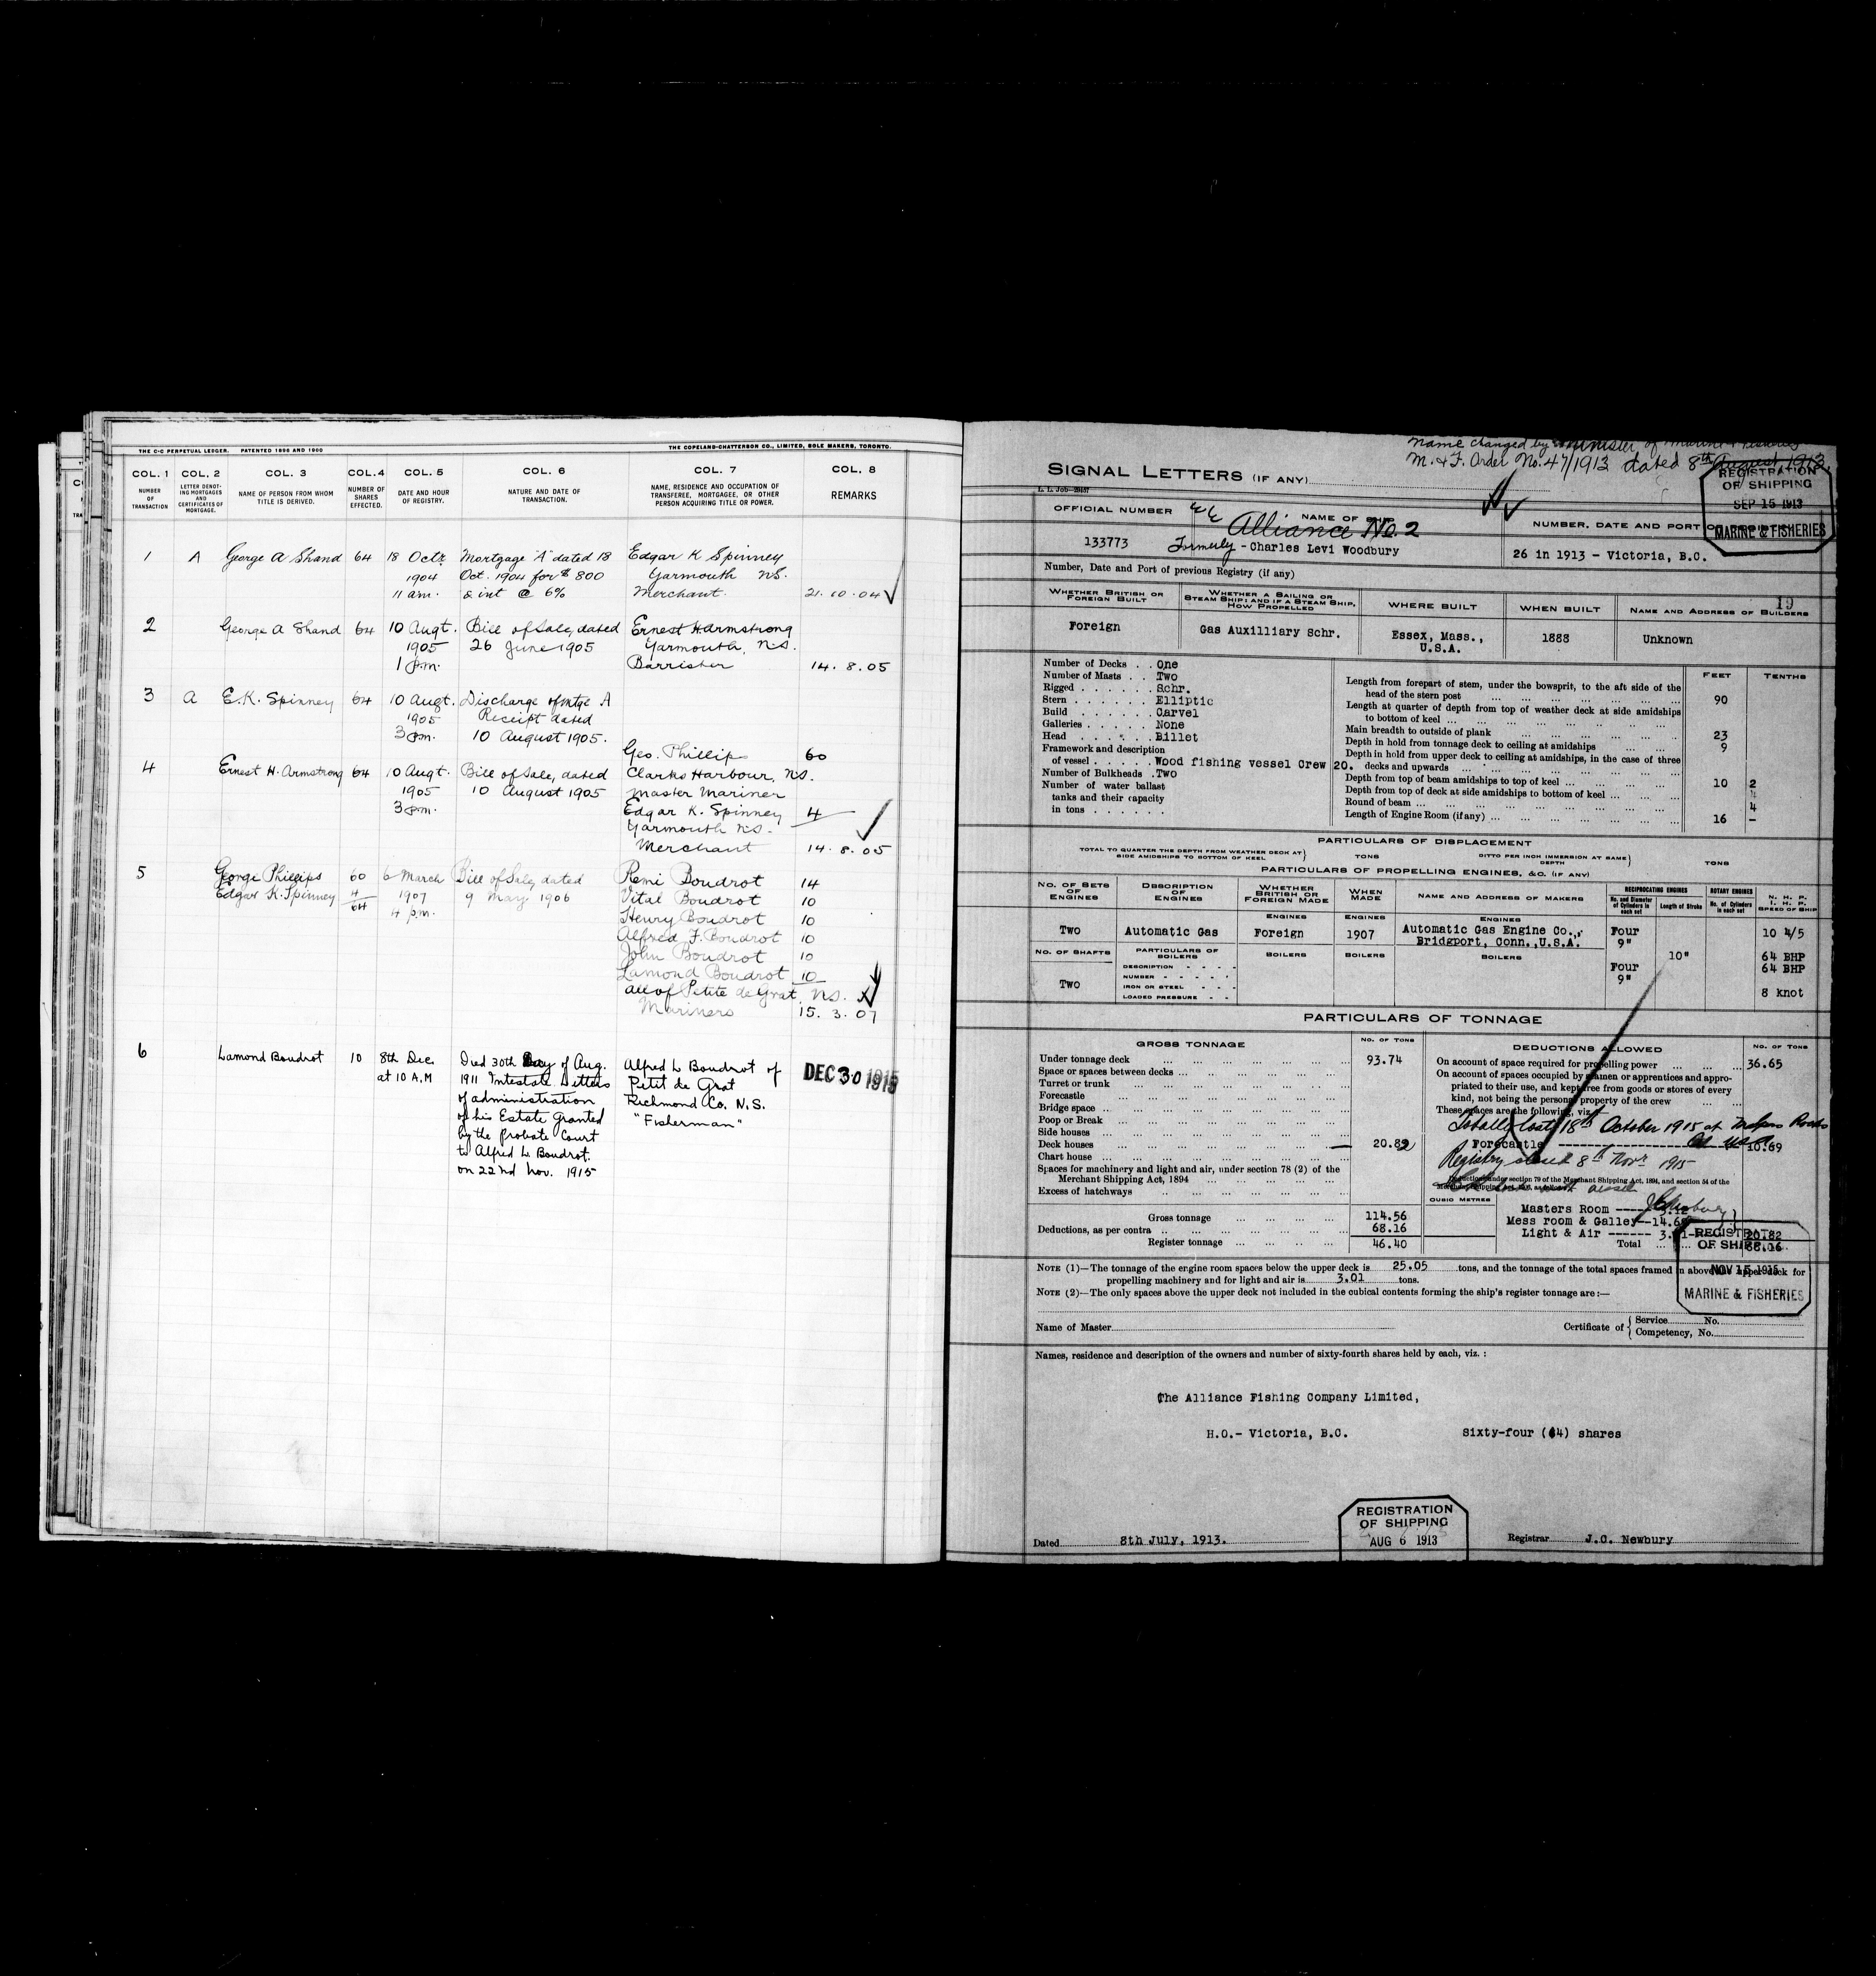 THE C-C PERPETUAL LEDGER. PATENTED 1896 AND 1900
THE COPELAND-CHATTERSON CO., LIMITED, SOLE MAKERS, TORONTO.
COL. 1 COL. 2 COL. 3 COL. 4 COL. 5 COL. 6 COL. 7 COL. 8
NUMBER OF TRANSACTION
LETTER DENOTING MORTGAGES AND CERTIFICATES OF MORTGAGE.
NAME OF PERSON FROM WHOM TITLE IS DERIVED.
NUMBER OF SHARES EFFECTED.
DATE AND HOUR OF REGISTRY.
NATURE AND DATE OF TRANSACTION.
NAME, RESIDENCE AND OCCUPATION OF TRANSFEREE, MORTGAGEE, OR OTHER PERSON ACQUIRING TITLE OR POWER.
REMARKS
1 A George A Shand 64 18 Octr. Mortgage "A" dated 18 Edgar K Spinney
1904 Oct. 1904 for $800 Yarmouth N.S.
11 am. & int @ 6% Merchant. 21.10.04
2 George A Shand 64 10 Augt. Bill of Sale, dated Ernest H Armstrong
1905 26 June 1905 Yarmouth, N.S.
1 pm. Barrister 14.8.05
3 A E.K. Spinney 64 10 Augt. Discharge of mtge A
1905 Receipt dated
3 pm. 10 August 1905.
Geo. Phillips 60
4 Ernest H. Armstrong 64 10 Augt. Bill of Sale, dated Clarks Harbour, N.S.
1905 10 August 1905 Master Mariner
3 pm. Edgar K. Spinney 4
Yarmouth N.S.
Merchant 14.8.05
5 George Phillips 60 6 March Bill of Sale, dated Remi Boudrot 14
Edgar K. Spinney 4 1907 9 May 1906 Vital Boudrot 10
64 4 p.m. Henry Boudrot 10
Alfred F. Boudrot 10
John Boudrot 10
Lamond Boudrot 10
all of Petite de Grat, N.S.
Mariners 15.3.07
6 Lamond Boudrot 10 8th Dec. Died 30th Day of Aug. Alfred L Boudrot of DEC 30 1915
at 10 A.M 1911 Intestate. Letters Petit de Grat
of administration Richmond Co. N.S.
of his Estate Granted "Fisherman"
by the Probate Court
to Alfred L. Boudrot.
on 22nd Nov. 1915
Name changed by Minister of Marine & Fisheries
M. & F. Order No. 47/1913 dated 8th August 1913.
SIGNAL LETTERS (IF ANY)
REGISTRATION
OF SHIPPING
SEP 15 1913
MARINE & FISHERIES
L. L. Job—
OFFICIAL NUMBER
NAME OF SHIP
NUMBER, DATE AND PORT OF
Alliance No. 2
133773
Formerly - Charles Levi Woodbury
26 in 1913 - Victoria, B.C.
Number, Date and Port of previous Registry (if any)
19
WHETHER BRITISH OR FOREIGN BUILT
WHETHER A SAILING OR STEAM SHIP; AND IF A STEAM SHIP, HOW PROPELLED
WHERE BUILT
WHEN BUILT
NAME AND ADDRESS OF BUILDERS
Foreign
Gas Auxilliary Schr.
Essex, Mass., U.S.A.
1888
Unknown
Number of Decks . . One
Number of Masts . . Two
Rigged . . . . . . Schr.
Stern . . . . . . Elliptic
Build . . . . . . Carvel
Galleries . . . . . None
Head . . . . . . Billet
Framework and description
of vessel . . . . . Wood fishing vessel Crew 20.
Number of Bulkheads . Two
Number of water ballast
tanks and their capacity
in tons . . . . . .
FEET TENTHS
Length from forepart of stem, under the bowsprit, to the aft side of the
head of the stern post 90
Length at quarter of depth from top of weather deck at side amidships
to bottom of keel
Main breadth to outside of plank 23
Depth in hold from tonnage deck to ceiling at amidships 9
Depth in hold from upper deck to ceiling at amidships, in the case of three
decks and upwards
Depth from top of beam amidships to top of keel 10 2
Depth from top of deck at side amidships to bottom of keel
Round of beam 4
Length of Engine Room (if any) 16 -
PARTICULARS OF DISPLACEMENT
TOTAL TO QUARTER THE DEPTH FROM WEATHER DECK AT SIDE AMIDSHIPS TO BOTTOM OF KEEL } TONS
DITTO PER INCH IMMERSION AT SAME DEPTH } TONS
PARTICULARS OF PROPELLING ENGINES, &C. (IF ANY)
NO. OF SETS OF ENGINES
DESCRIPTION OF ENGINES
WHETHER BRITISH OR FOREIGN MADE
WHEN MADE
NAME AND ADDRESS OF MAKERS
RECIPROCATING ENGINES
ROTARY ENGINES
No. and Diameter of Cylinders in each set
Length of Stroke
No. of Cylinders in each set
N. H. P.
I. H. P.
SPEED OF SHIP
ENGINES ENGINES ENGINES
Two Automatic Gas Foreign 1907 Automatic Gas Engine Co., Four 10 4/5
Bridgport, Conn.,U.S.A. 9"
NO. OF SHAFTS PARTICULARS OF BOILERS BOILERS BOILERS BOILERS 10" 64 BHP
DESCRIPTION Four 64 BHP
NUMBER 9"
Two IRON OR STEEL
LOADED PRESSURE 8 knot
PARTICULARS OF TONNAGE
GROSS TONNAGE NO. OF TONS
Under tonnage deck 93.74
Space or spaces between decks
Turret or trunk
Forecastle
Bridge space
Poop or Break
Side houses
Deck houses 20.82
Chart house
Spaces for machinery and light and air, under section 78 (2) of the
Merchant Shipping Act, 1894
Excess of hatchways
Gross tonnage 114.56
Deductions, as per contra 68.16
Register tonnage 46.40
DEDUCTIONS ALLOWED NO. OF TONS
On account of space required for propelling power 36.65
On account of spaces occupied by seamen or apprentices and appro-
priated to their use, and kept free from goods or stores of every
kind, not being the personal property of the crew
These spaces are the following, viz.
Totally lost 18th October 1915 at Rocks
Forecastle 10.69
Registry closed 8th Novr 1915
Deductions under section 79 of the Merchant Shipping Act, 1894, and section 54 of the
CUBIC METRES
Masters Room
Mess room & Galley--14.6
Light & Air ------ 3. 20.82
Total 68.16
REGISTRATION
OF SHIPPING
NOV 15 1915
MARINE & FISHERIES
NOTE (1)—The tonnage of the engine room spaces below the upper deck is 25.05 tons, and the tonnage of the total spaces framed in above the upper deck for
propelling machinery and for light and air is 3.01 tons.
NOTE (2)—The only spaces above the upper deck not included in the cubical contents forming the ship's register tonnage are:—
Name of Master
Certificate of { Service No.
Competency, No.
Names, residence and description of the owners and number of sixty-fourth shares held by each, viz. :
The Alliance Fishing Company Limited,
H.O.- Victoria, B.C. Sixty-four (64) shares
REGISTRATION
OF SHIPPING
AUG 6 1913
Dated 8th July, 1913.
Registrar J.C. Newbury